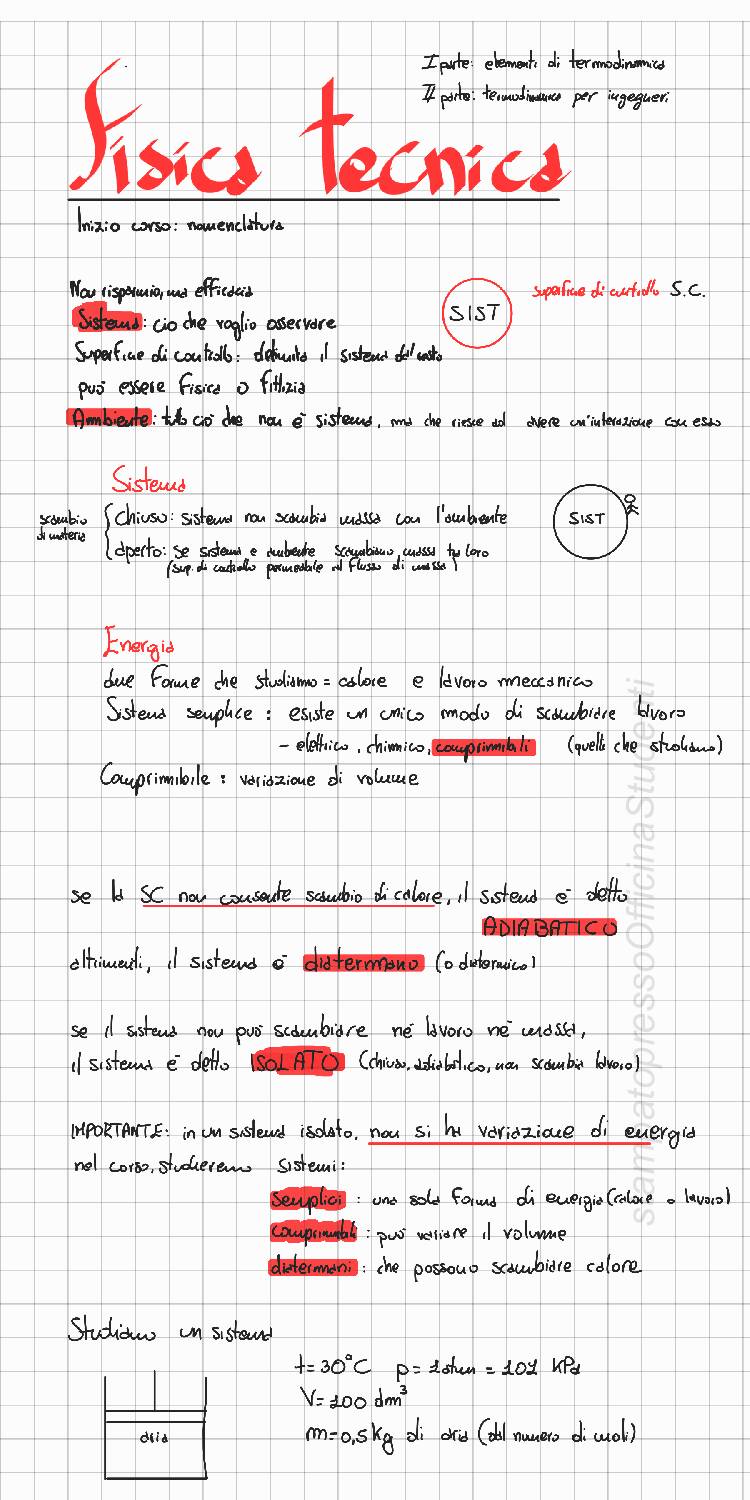 I parte: elementi di termodinamica
II parte: termodinamica per ingegneri
Fisica tecnica
Inizio corso: nomenclatura
Non risparmio, ma efficacia
Sistema: ciò che voglio osservare
SIST
superficie di controllo S.C.
Superficie di controllo: delimita il sistema dal resto
può essere fisica o fittizia
Ambiente: tutto ciò che non è sistema, ma che riesce ad avere un'interazione con esso
Sistema
scambio di materia
chiuso: sistema non scambia massa con l'ambiente
aperto: se sistema e ambiente scambiano massa tra loro
(sup. di controllo permeabile al flusso di massa)
SIST
Energia
due forme che studiamo = calore e lavoro meccanico
Sistema semplice: esiste un unico modo di scambiare lavoro
- elettrico, chimico, comprimibili (quelli che studiamo)
Comprimibile: variazione di volume
se la SC non consente scambio di calore, il sistema è detto
ADIABATICO
altrimenti, il sistema è diatermano (o diatermico)
se il sistema non può scambiare né lavoro né massa,
il sistema è detto ISOLATO (chiuso, adiabatico, non scambia lavoro)
IMPORTANTE: in un sistema isolato, non si ha variazione di energia
nel corso, studieremo sistemi:
semplici: una sola forma di energia (calore o lavoro)
comprimibili: può variare il volume
diatermani: che possono scambiare calore
Studiamo un sistema
t=30°C p=1atm = 101 kPa
V=100 dm³
aria
m=0,5kg di aria (dal numero di moli)
stampatopressoOfficinaStudenti